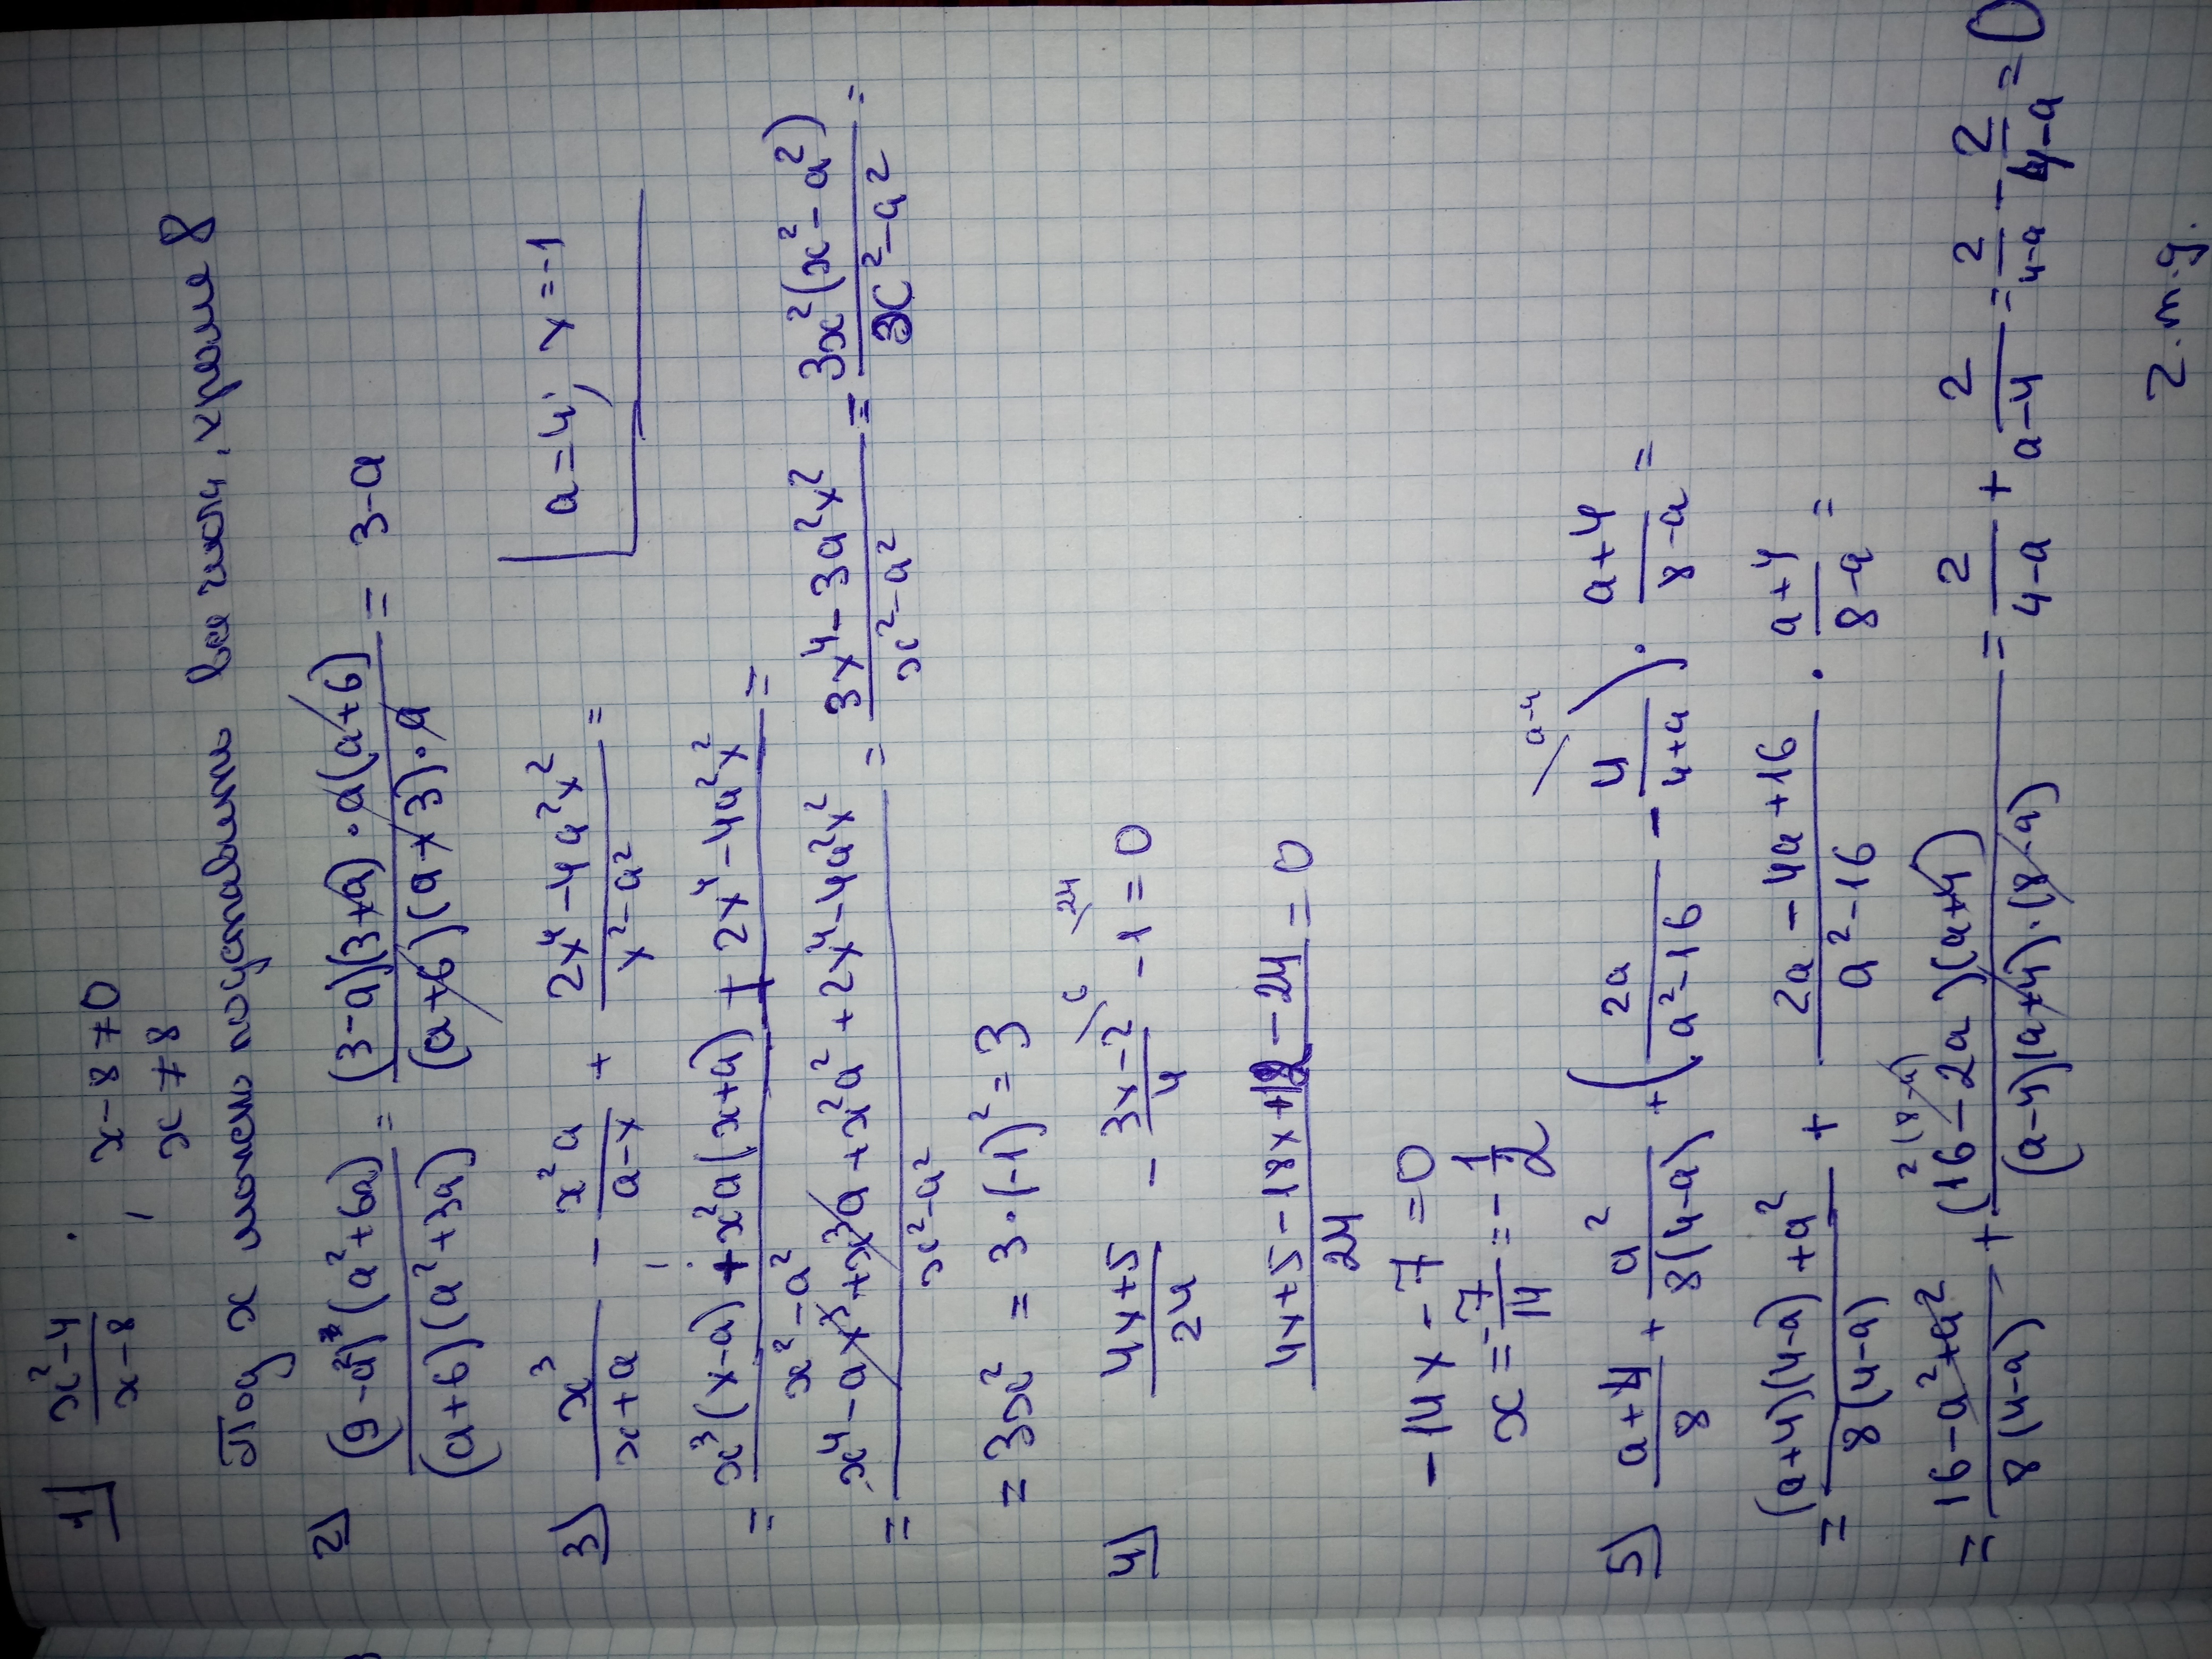 1) (x²-4)/(x-8) , x-8≠0
x≠8
Под x можем подставить все числа, кроме 8
2) ((9-a²)(a²+6a))/((a+6)(a²+3a)) = ((3-a)(3+a)·a(a+6))/((a+6)(a+3)·a) = 3-a
3) x³/(x+a) - x²a/(a-x) + (2x⁴-4a²x²)/(x²-a²) =
a=4; x=-1
= (x³(x-a)+x²a(x+a)+2x⁴-4a²x²)/(x²-a²) =
= (x⁴-ax³+x³a+x²a²+2x⁴-4a²x²)/(x²-a²) = (3x⁴-3a²x²)/(x²-a²) = (3x²(x²-a²))/(x²-a²) =
= 3x² = 3·(-1)² = 3
4) (4x+5)/24 - (3x-2)/4 \6 -1 \24 =0
(4x+5-18x+12-24)/24 =0
-14x-7=0
x=-7/14=-1/2
5) (a+4)/8 + a²/(8(4-a)) + (2a/(a²-16) - 4/(4+a) \a-4)·(a+4)/(8-a) =
= ((a+4)(4-a)+a²)/(8(4-a)) + (2a-4a+16)/(a²-16) · (a+4)/(8-a) =
2(8-a)
= (16-a²+a²)/(8(4-a)) + ((16-2a)(a+4))/((a-4)(a+4)·(8-a)) = 2/(4-a) + 2/(a-4) = 2/(4-a) - 2/(4-a) = 0
z.m.g.